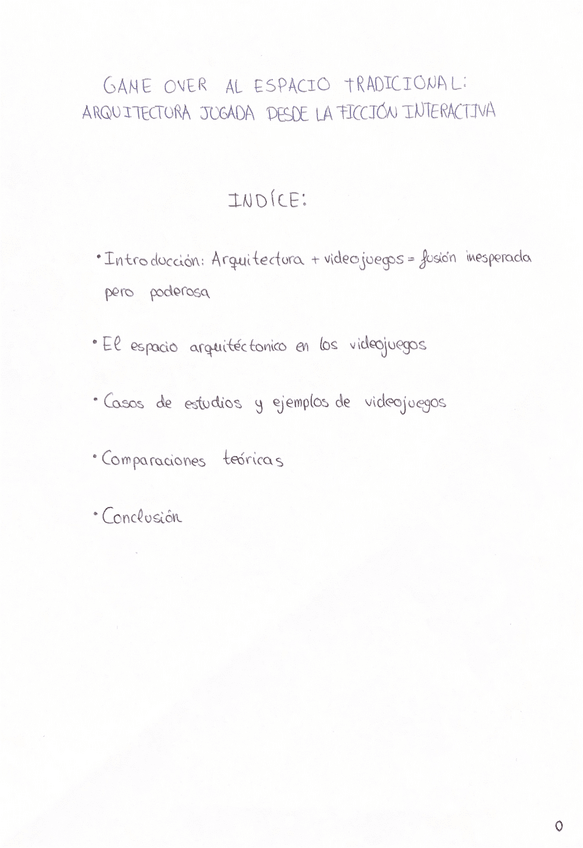 GAME OVER AL ESPACIO TRADICIONAL:
ARQUITECTURA JUGADA DESDE LA FICCIÓN INTERACTIVA
INDÍCE:
• Introducción: Arquitectura + videojuegos = fusión inesperada
pero poderosa
• El espacio arquitéctonico en los videojuegos
• Casos de estudios y ejemplos de videojuegos
• Comparaciones teóricas
• Conclusión
0